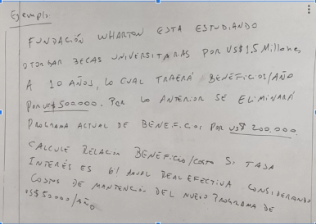 Ejemplo
FUNDACIÓN WHARTON ESTA ESTUDIANDO
OTORGAR BECAS UNIVERSITARIAS POR US$ 1.5 Millones
A 10 AÑOS, LO CUAL TRAERÁ BENEFICIOS/AÑO
POR US$ 500000. POR LO ANTERIOR SE ELIMINARÁ
PROGRAMA ACTUAL DE BENEFICIOS POR US$ 200.000.
CALCULE RELACION BENEFICIO/COSTO SI TASA
INTERÉS ES 6% ANUAL REAL EFECTIVA CONSIDERANDO
COSTOS DE MANTENCION DEL NUEVO PROGRAMA DE
US$ 50000/AÑO.